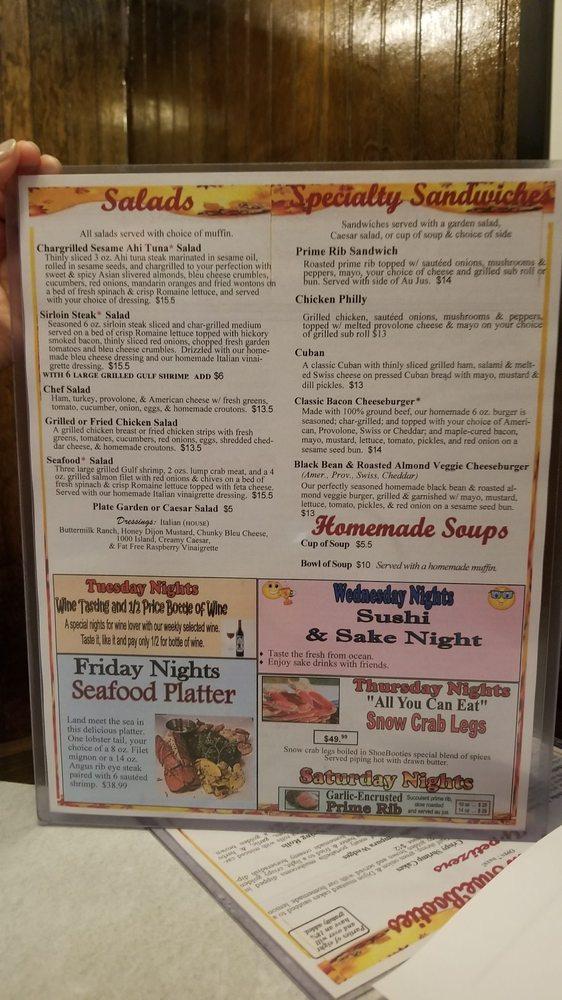 Salads
All salads served with choice of muffin.
Chargrilled Sesame Ahi Tuna* Salad
Thinly sliced 3 oz. Ahi tuna steak marinated in sesame oil,
rolled in sesame seeds, and chargrilled to your perfection with
sweet & spicy Asian slivered almonds, bleu cheese crumbles,
cucumbers, red onions, mandarin oranges and fried wontons on
a bed of fresh spinach & crisp Romaine lettuce, and served
with your choice of dressing. $15.5
Sirloin Steak* Salad
Seasoned 6 oz. sirloin steak sliced and char-grilled medium
served on a bed of crisp Romaine lettuce topped with hickory
smoked bacon, thinly sliced red onions, chopped fresh garden
tomatoes and bleu cheese crumbles. Drizzled with our home-
made bleu cheese dressing and our homemade Italian vinai-
grette dressing. $15.5
WITH 6 LARGE GRILLED GULF SHRIMP. ADD $6
Chef Salad
Ham, turkey, provolone, & American cheese w/ fresh greens,
tomato, cucumber, onion, eggs, & homemade croutons. $13.5
Grilled or Fried Chicken Salad
A grilled chicken breast or fried chicken strips with fresh
greens, tomatoes, cucumbers, red onions, eggs, shredded ched-
dar cheese, & homemade croutons. $13.5
Seafood* Salad
Three large grilled Gulf shrimp, 2 ozs. lump crab meat, and a 4
oz. grilled salmon filet with red onions & chives on a bed of
fresh spinach & crisp Romaine lettuce topped with feta cheese.
Served with our homemade Italian vinaigrette dressing. $15.5
Plate Garden or Caesar Salad $5
Dressings: Italian (HOUSE)
Buttermilk Ranch, Honey Dijon Mustard, Chunky Bleu Cheese,
1000 Island, Creamy Caesar,
& Fat Free Raspberry Vinaigrette
Specialty Sandwiches
Sandwiches served with a garden salad,
Caesar salad, or cup of soup & choice of side
Prime Rib Sandwich
Roasted prime rib topped w/ sautéed onions, mushrooms &
peppers, mayo, your choice of cheese and grilled sub roll or
bun. Served with side of Au Jus. $14
Chicken Philly
Grilled chicken, sautéed onions, mushrooms & peppers,
topped w/ melted provolone cheese & mayo on your choice
of grilled sub roll $13
Cuban
A classic Cuban with thinly sliced grilled ham, salami & melt-
ed Swiss cheese on pressed Cuban bread with mayo, mustard &
dill pickles. $13
Classic Bacon Cheeseburger*
Made with 100% ground beef, our homemade 6 oz. burger is
seasoned; char-grilled; and topped with your choice of Ameri-
can, Provolone, Swiss or Cheddar; and maple-cured bacon,
mayo, mustard, lettuce, tomato, pickles, and red onion on a
sesame seed bun. $14
Black Bean & Roasted Almond Veggie Cheeseburger
(Amer., Prov., Swiss, Cheddar)
Our perfectly seasoned homemade black bean & roasted al-
mond veggie burger, grilled & garnished w/ mayo, mustard,
lettuce, tomato, pickles, & red onion on a sesame seed bun.
$13
Homemade Soups
Cup of Soup $5.5
Bowl of Soup $10 Served with a homemade muffin.
Tuesday Nights
Wine Tasting and 1/2 Price Bottle of Wine
A special nights for wine lover with our weekly selected wine.
Taste it, like it and pay only 1/2 for bottle of wine.
Wednesday Nights
Sushi
& Sake Night
Taste the fresh from ocean.
Enjoy sake drinks with friends.
Friday Nights
Seafood Platter
Land meet the sea in
this delicious platter.
One lobster tail, your
choice of a 8 oz. Filet
mignon or a 14 oz.
Angus rib eye steak
paired with 6 sautéed
shrimp. $38.99
Thursday Nights
"All You Can Eat"
Snow Crab Legs
$49.99
Snow crab legs boiled in ShoeBooties special blend of spices
Served piping hot with drawn butter.
Saturday Nights
Garlic-Encrusted
Prime Rib
Succulent prime rib,
slow roasted
and served au jus.
Parties of eight